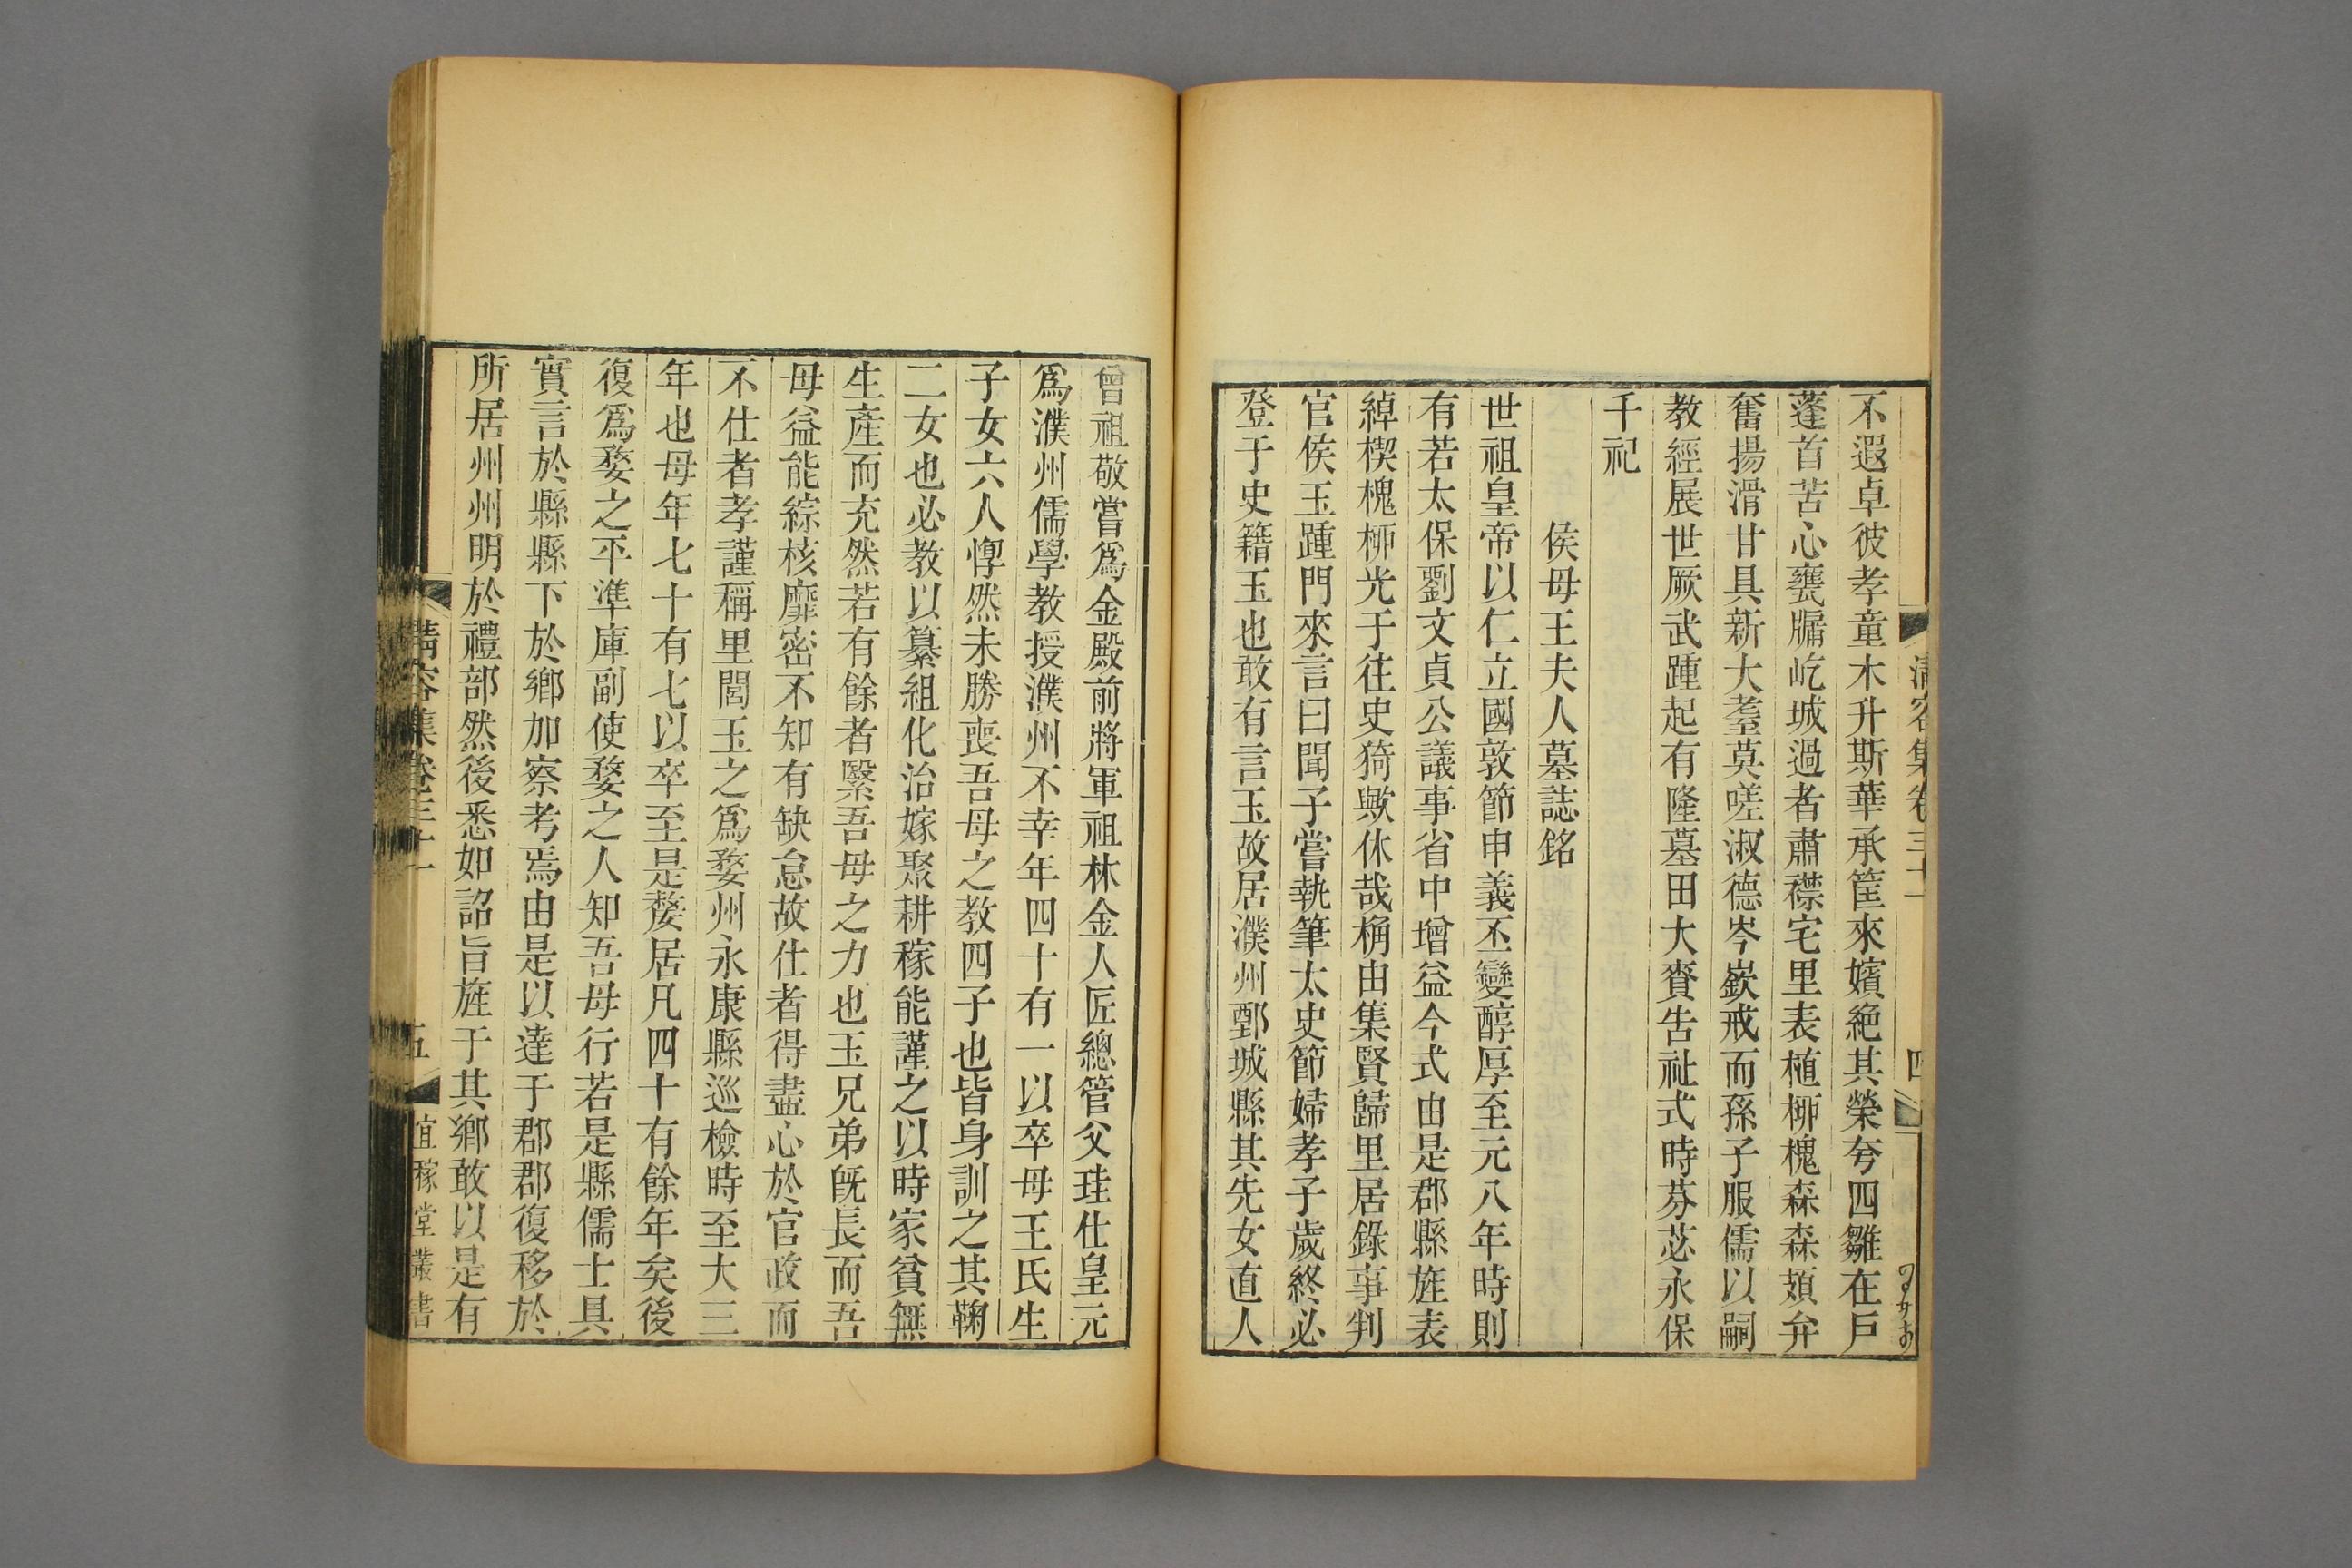 清容集卷三十一 四
不遐卓彼孝童木升斯華承筐來嬪絶其榮夸四雛在戸
蓬首苦心甕牖屹城過者肅襟宅里表植栁槐森森頍弁
奮揚滑甘具新大耋莫嗟淑德岑嶔戒而孫子服儒以嗣
教經展世厥武踵起有隆墓田大賚告祉式時芬苾永保
千祀
侯母王夫人墓誌銘
世祖皇帝以仁立國敦節申義丕變醇厚至元八年時則
有若太保劉文貞公議事省中增益今式由是郡縣旌表
綽楔槐栁光于往史猗歟休哉桷由集賢歸里居錄事判
官侯玉踵門來言曰聞子嘗執筆太史節婦孝子歲終必
登于史籍玉也敢有言玉故居濮州鄄城縣其先女直人
曾祖敬嘗爲金殿前將軍祖林金人匠總管父珪仕皇元
爲濮州儒學教授濮州不幸年四十有一以卒母王氏生
子女六人惸然未勝喪吾母之教四子也皆身訓之其鞠
二女也必教以纂組化治嫁聚耕稼能謹之以時家貧無
生產而充然若有餘者繄吾母之力也玉兄弟旣長而吾
母益能綜核靡密不知有缺怠故仕者得盡心於官政而
不仕者孝謹稱里閭玉之爲婺州永康縣巡檢時至大三
年也母年七十有七以卒至是嫠居凡四十有餘年矣後
復爲婺之平準庫副使婺之人知吾母行若是縣儒士具
實言於縣縣下於鄉加察考焉由是以達于郡郡復移於
所居州州明於禮部然後悉如詔旨旌于其鄉敢以是有
清容集卷三十一 五 宜稼堂叢書